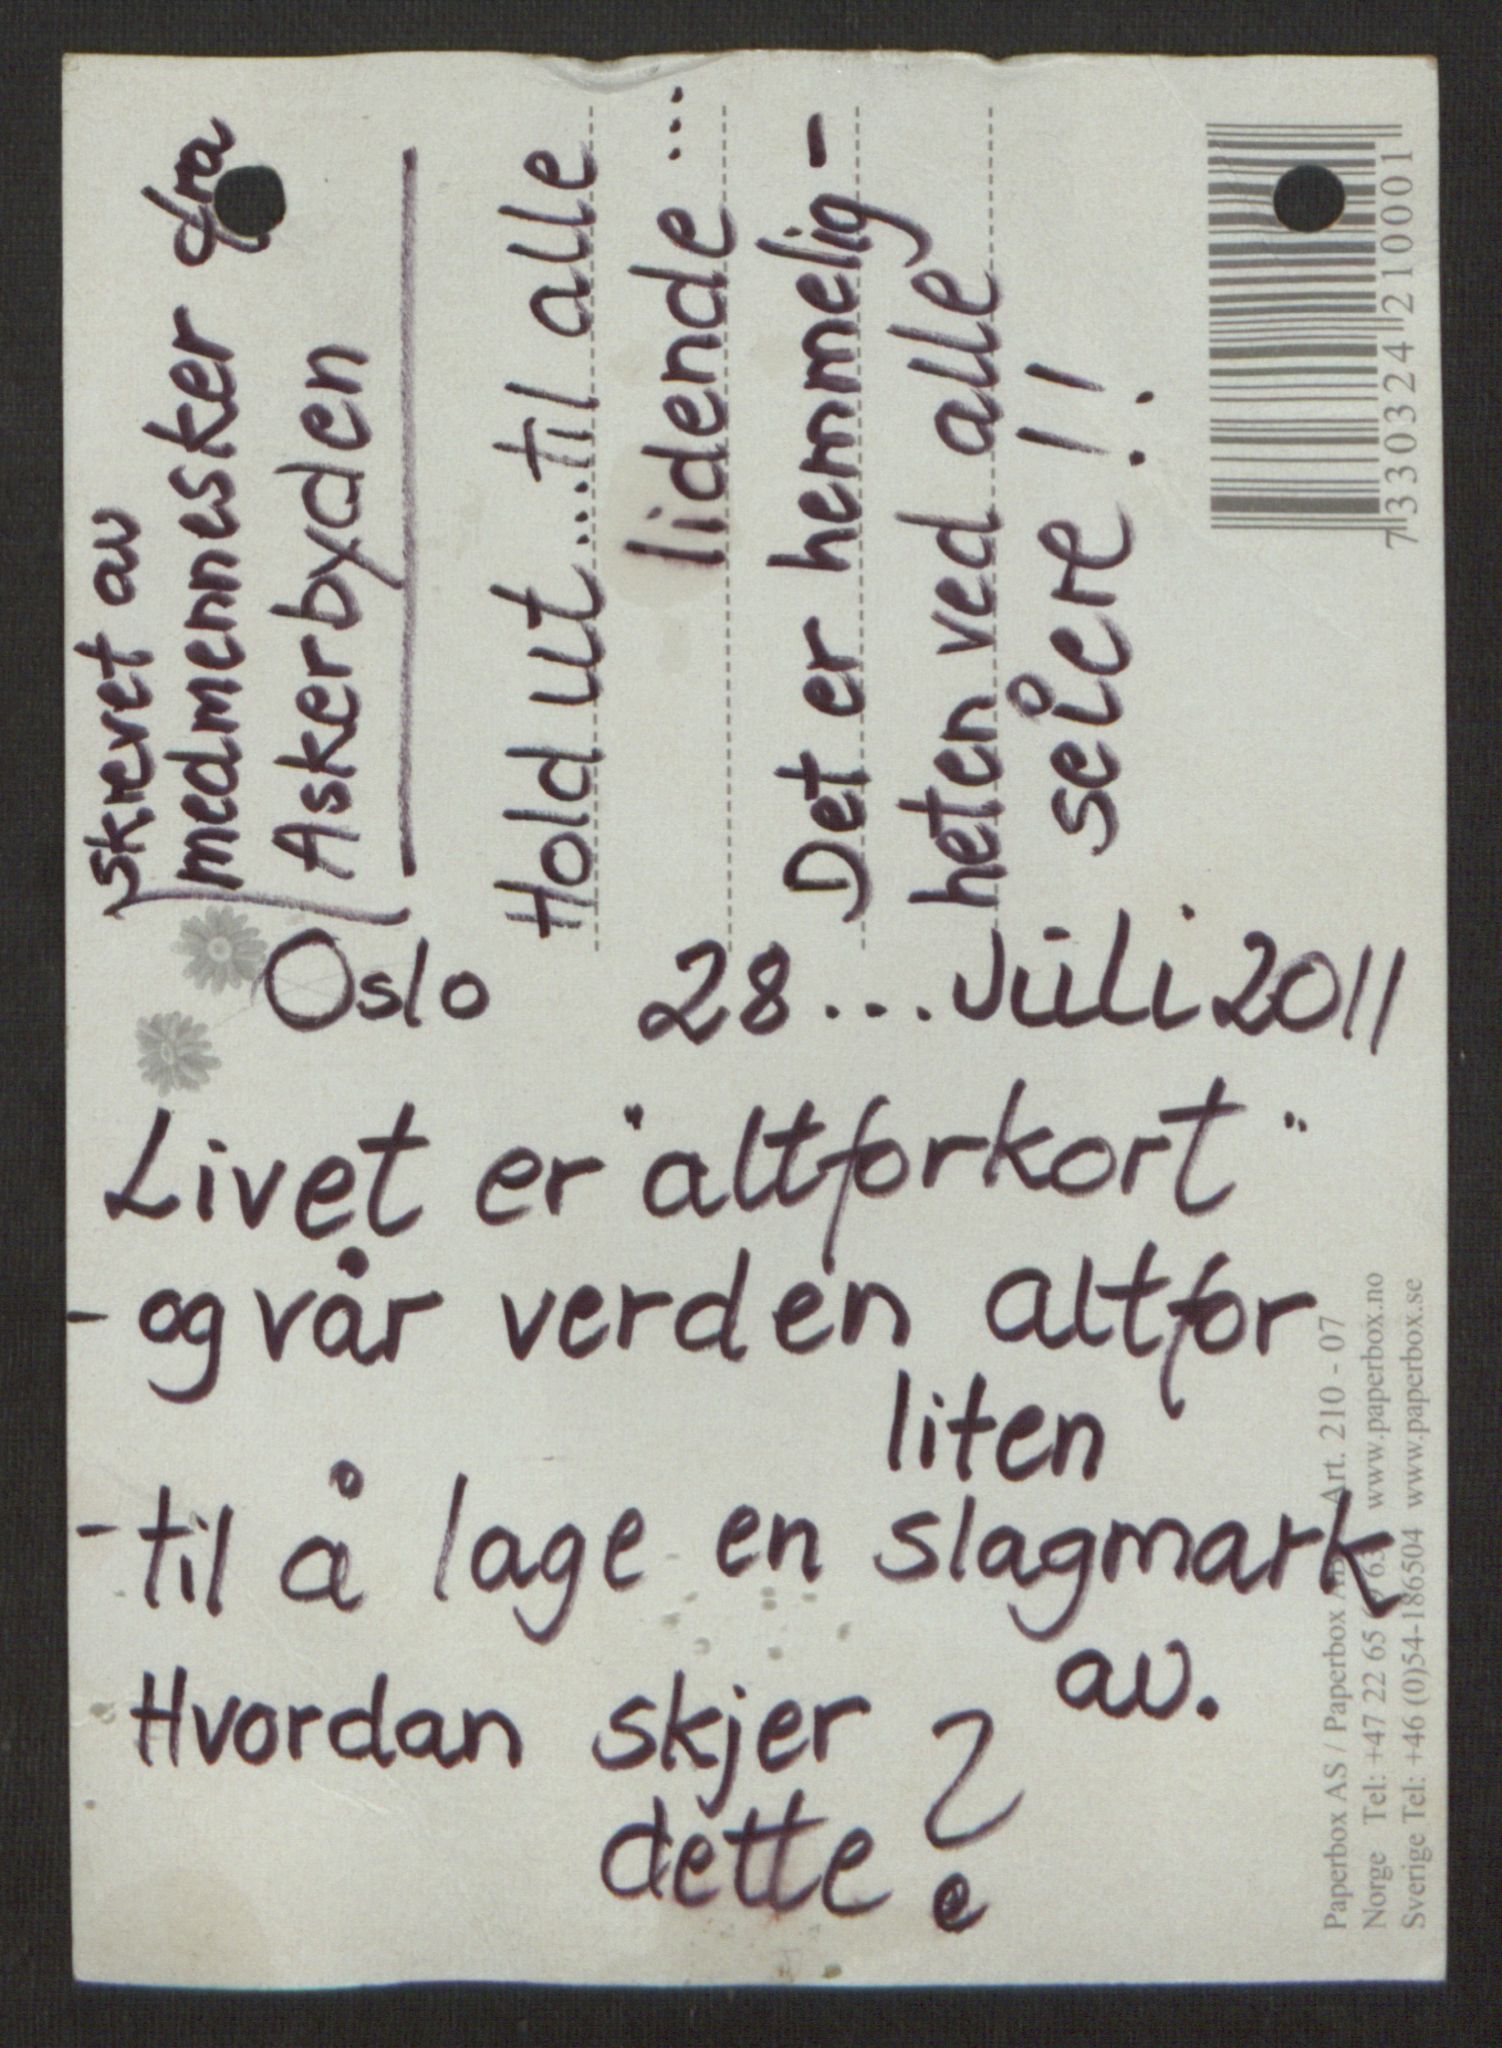 skrevet av
medmennesker fra
Askerbyden
Hold ut...til alle
lidende...
Det er hemmelig-
heten ved alle
seire!!
7 330324 210001
Oslo 28...Juli 2011
Livet er "altforkort"
- og vår verden altfor
liten
- til å lage en slagmark
av.
Hvordan skjer
dette?
Paperbox AS / Paperbox Art. 210 - 07
Norge Tel: +47 22 65 63 www.paperbox.no
Sverige Tel: +46 (0)54-186504 www.paperbox.se